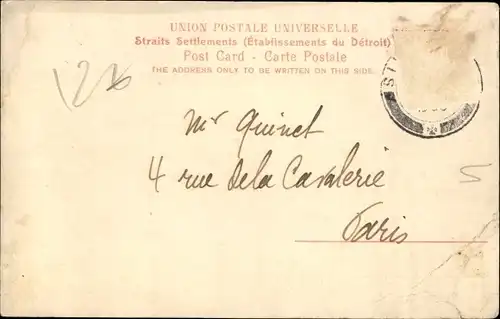 UNION POSTALE UNIVERSELLE
Straits Settlements (Établissements du Détroit)
Post Card - Carte Postale
THE ADDRESS ONLY TO BE WRITTEN ON THIS SIDE.
Mr Quinet
4 rue de la Cavalerie
Paris
5